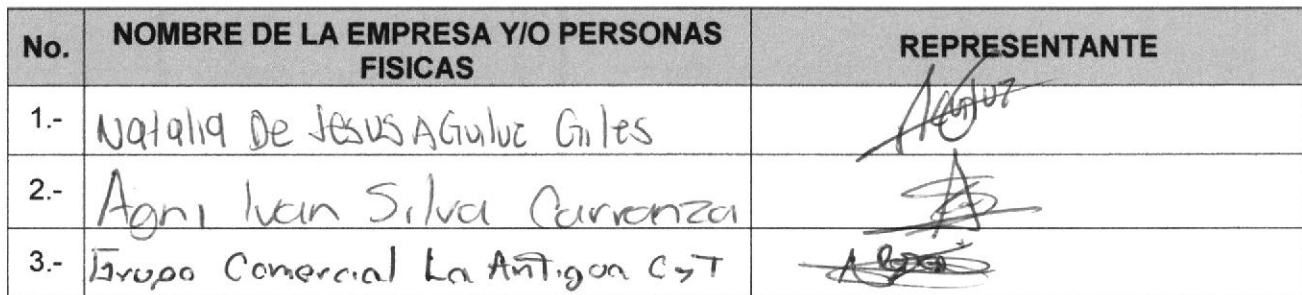 No. NOMBRE DE LA EMPRESA Y/O PERSONAS FISICAS REPRESENTANTE
1.- Natalia De Jesus AGuluz Giles
2.- Agni Ivan Silva Carranza
3.- Grupo Comercial La Antigua CyT